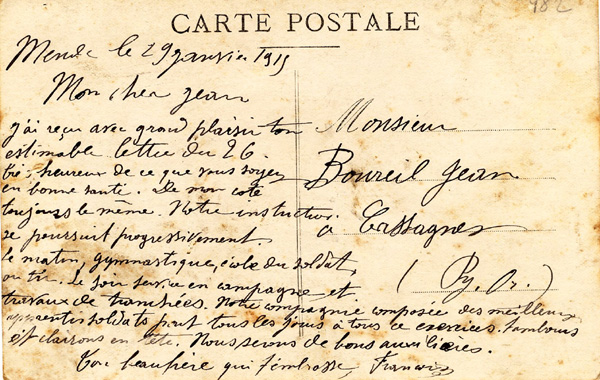 482
CARTE POSTALE
Mende le 29 janvier 1915
Mon cher Jean
j'ai reçu avec grand plaisir ton
estimable lettre du 26.
très heureux de ce que vous soyez
en bonne santé. De mon coté
toujours le même. Notre instruction
se poursuit progressivement.
le matin, gymnastique, école du soldat,
ou tir. Le soir service en campagne et
travaux de tranchées. Notre compagnie composée des meilleurs
apprentis soldats part tous les jours à tous ce exercices. tambours
et clairons en tête. Nous serons de bons auxiliaires.
Ton beaufrère qui t'embrasse, François
Monsieur
Boureil Jean
à Cassagnes
(Py. Or.)